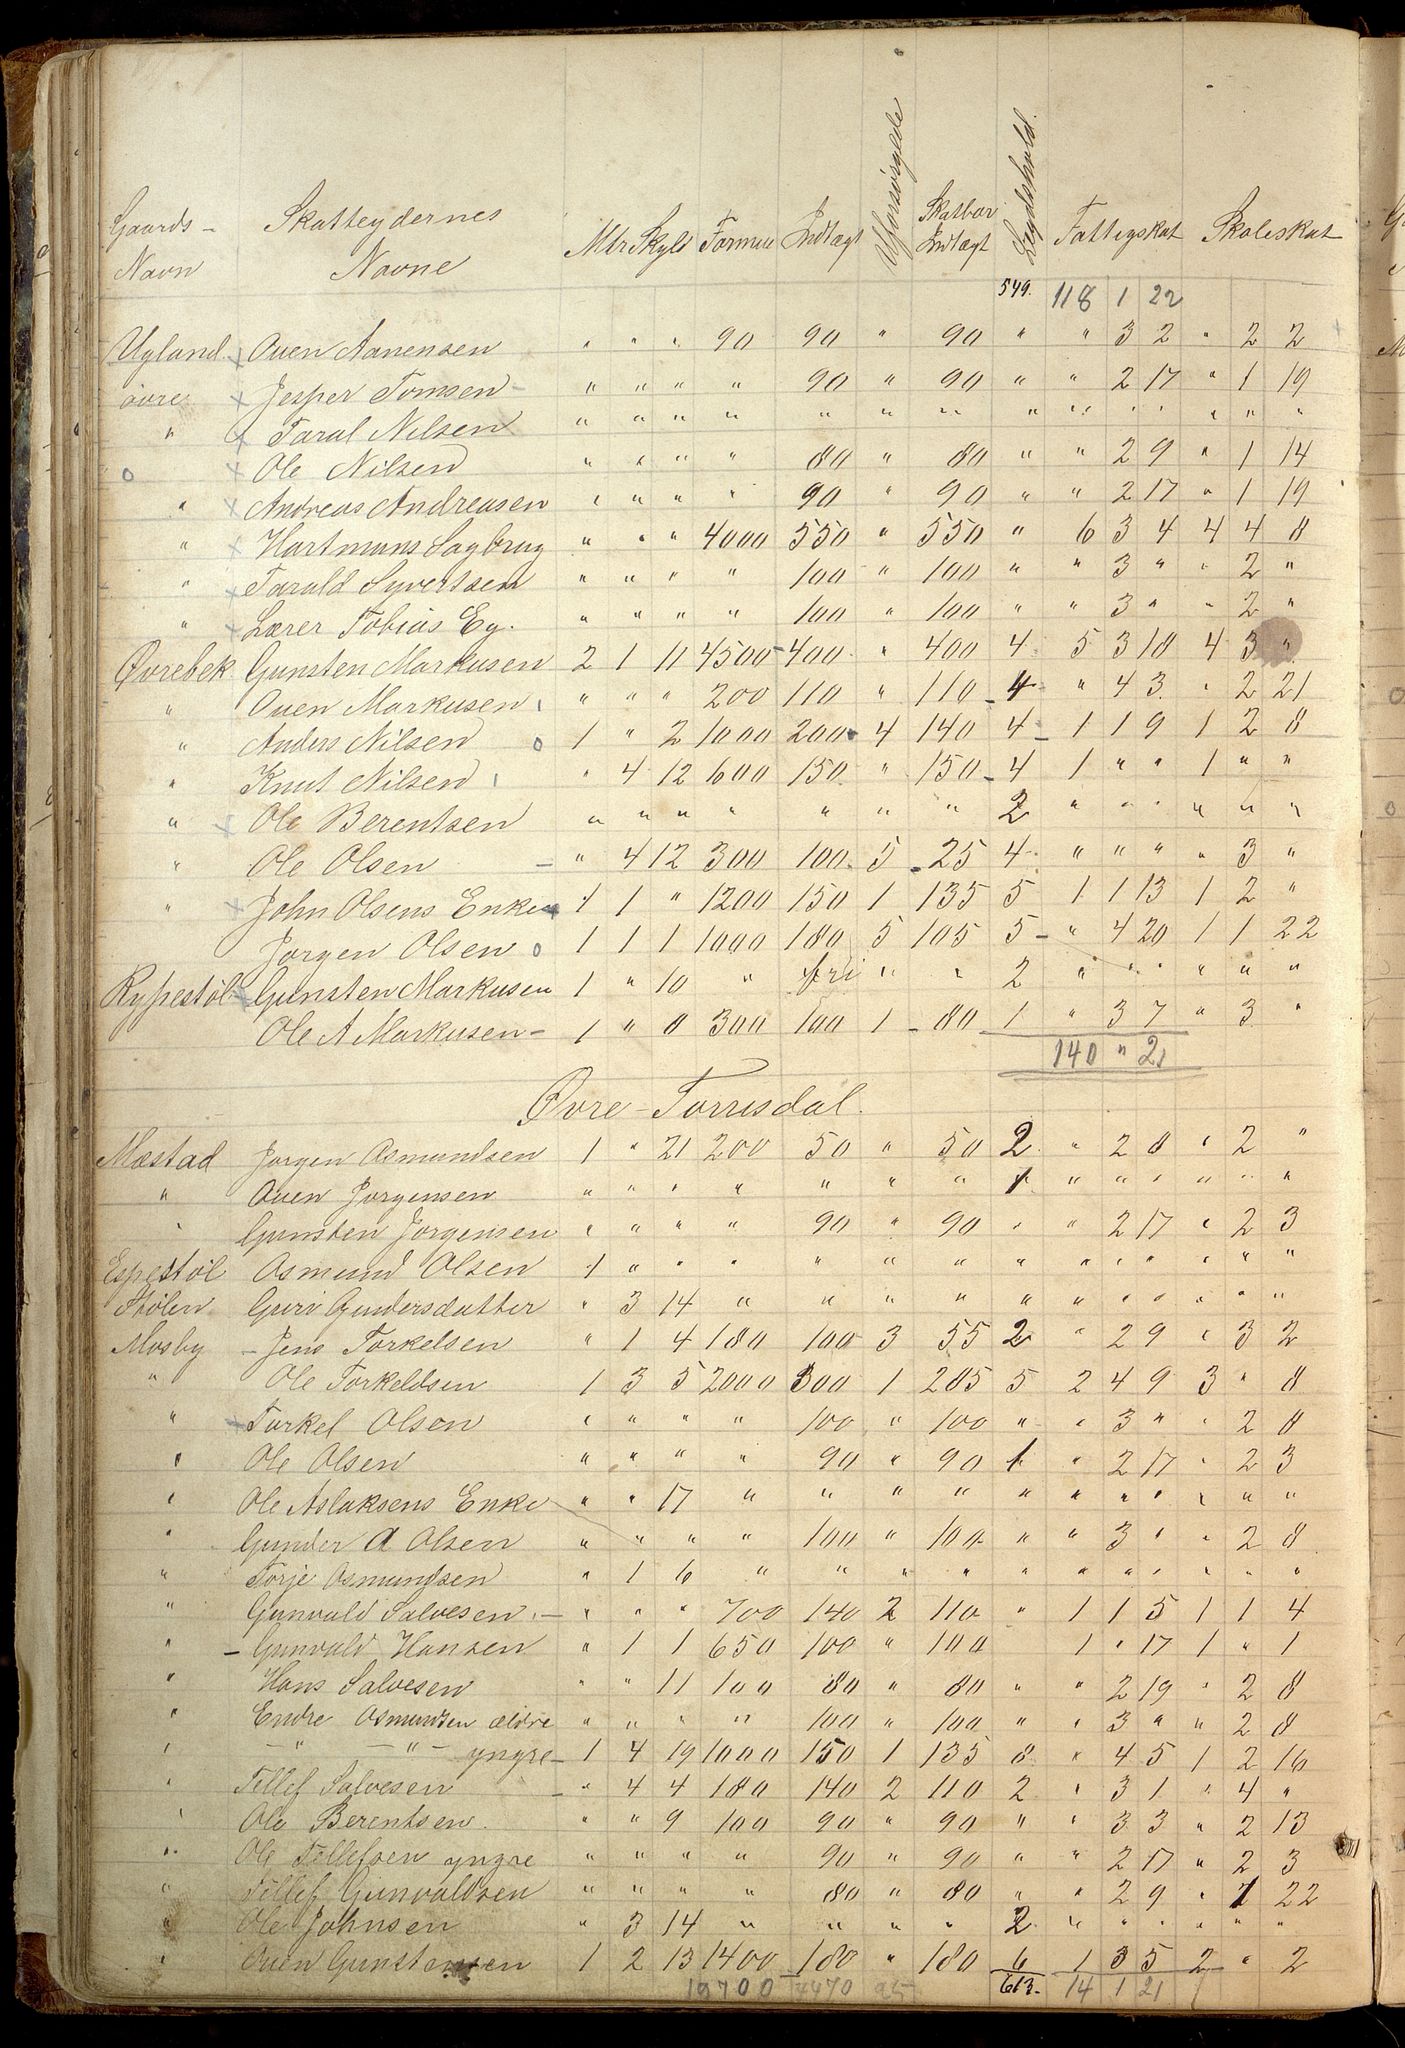 Gaards- Navn Skatteydernes Navne Mtr Skyld Formue Indtægt Uforsørgede Skatbar Indtægt Lægdshold. Fattigskat Skoleskat
549. 118 1 22
Ugland Ouen Aanensen " " " 90 90 " 90 " " 3 2 " 2 2
övre Jesper Tomsen " " " " 90 " 90 " " 2 17 " 1 19
" Taral Nilsen " " " " " " " " " " " " " "
o Ole Nilsen " " " " 80 " 80 " " 2 9 " 1 14
" Andreas Andreasen " " " " 90 " 90 " " 2 17 " 1 19
" Hartmans Sagbrug " " " 4000 550 " 550 " 6 3 4 4 4 8
" Tarald Syvertsen " " " " 100 " 100 " " 3 " " 2 "
" Lærer Tobias Eg. " " " " 100 " 100 " " 3 " " 2 "
Øvrebek Gunsten Markusen 2 1 11 4500 400 " 400 4 5 3 18 4 3 "
" Ouen Markusen " " " 200 110 " 110 4 " 4 3 " 2 21
" Anders Nilsen o 1 " 2 1000 200 4 140 4 1 1 9 1 2 8
" Knut Nilsen " 4 12 600 150 " 150 4 1 " " 1 " "
" Ole Berentsen " " " " " " " 2 " " " " " "
" Ole Olsen " 4 12 300 100 5 25 4 " " " " 3 "
" John Olsens Enke 1 1 " 1200 150 1 135 5 1 1 13 1 2 "
Jørgen Olsen o 1 1 1 1000 180 5 105 5 " 4 20 1 1 22
Rypestøl Gunsten Markusen 1 " 10 " fri " " 2 " " " " " "
Ole A Markusen 1 " 8 300 100 1 80 1 " 3 7 " 3 "
140 " 21
Øvre-Torrisdal.
Mæstad Jørgen Osmundsen 1 " 21 200 50 " 50 2 " 2 8 " 2 "
" Ouen Jørgensen " " " " " " " 1 " " " " " "
" Gunsten Jørgensen " " " " 90 " 90 " " 2 17 " 2 3
Espestøl Osmund Olsen 1 " " " " " " " " " " " " "
Stølen Guri Gundersdatter " 3 14 " " " " " " " " " " "
Mosby Jens Torkelsen " 1 4 180 100 3 55 2 " 2 9 " 3 2
" Ole Torkeldsen 1 3 5 2000 300 1 285 5 2 4 9 3 " 8
" Torkel Olsen " " " " 100 " 100 " " 3 " " 2 8
" Ole Olsen " " " " 90 " 90 1 " 2 17 " 2 3
" Ole Aslaksens Enke " " 17 " " " " " " " " " " "
" Gunder A Olsen " " " " 100 " 100 " " 3 " " 2 8
" Torje Osmundsen " 1 6 " " " " " " " " " " "
" Gunvald Salvesen " " " 700 140 2 110 " 1 1 5 1 1 4
" Gunvald Hansen " 1 1 650 100 " 100 1 " 17 1 " 1
" Hans Salvesen " " 11 100 80 " 80 " " 2 19 " 2 8
" Endre Osmundsen ældre " " " " 100 " 100 " " 3 " " 2 8
" - " - " - yngre 1 4 19 1000 150 1 135 8 " 4 5 1 2 16
" Tellef Salvesen " 4 4 180 140 2 110 2 " 3 1 " 4 "
" Ole Berentsen. " " 9 100 90 " 90 " " 3 3 " 2 13
" Ole Tellefsen yngre " " " " 90 " 90 " " 2 17 " 2 3
" Tellef Gunvaldsen " " " " 80 " 80 " " 2 9 " 1 22
" Ole Johnsen " 3 14 " " " " 2 " " " " " "
" Ouen Gunstensen 1 2 13 1400 180 " 180 6 1 3 5 2 " 2
19700 4470 95 613. 14 1 21